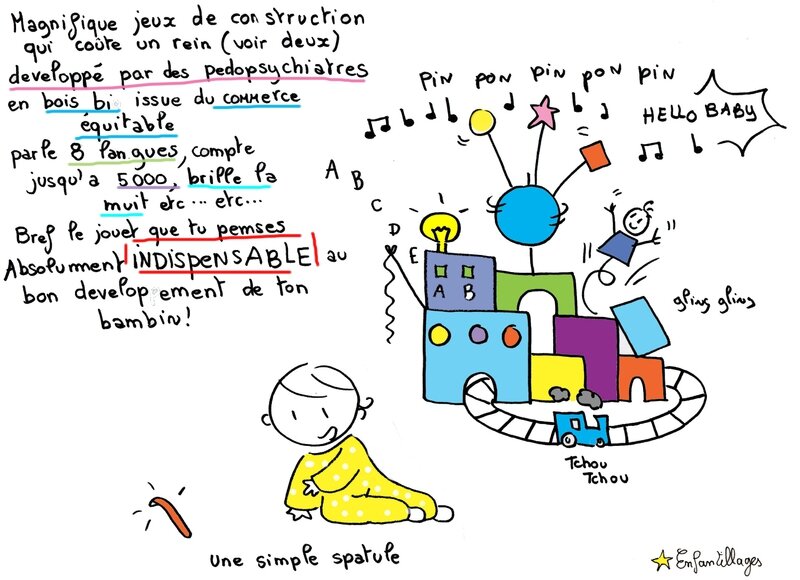 Magnifique jeux de construction
qui coûte un rein (voir deux)
developpé par des pedopsychiatres
en bois bio issue du commerce
équitable
parle 8 langues, compte
jusqu'a 5000, brille la
muit etc... etc...
Bref le jouet que tu pemses
Absolument iNDispeNSABLE au
bon developpement de ton
bambin!
PiN PON PiN PON PiN
HELLO BABY
A
B
C
D
E
A B
gling gling
Tchou
Tchou
une simple spatule
Enfantillages